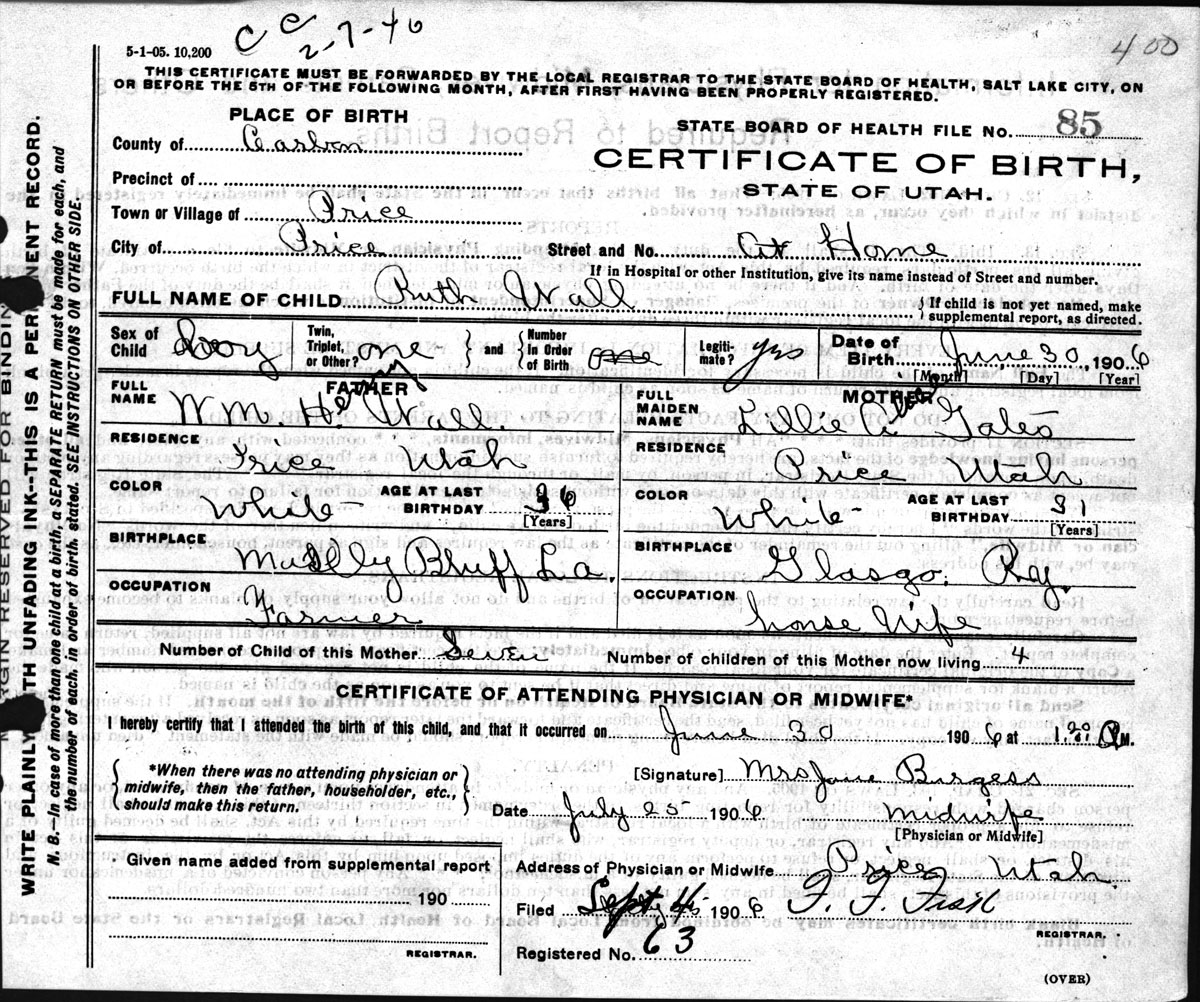 5-1-05. 10,200
C C 2-7-40
400
THIS CERTIFICATE MUST BE FORWARDED BY THE LOCAL REGISTRAR TO THE STATE BOARD OF HEALTH, SALT LAKE CITY, ON
OR BEFORE THE 5TH OF THE FOLLOWING MONTH, AFTER FIRST HAVING BEEN PROPERLY REGISTERED.
PLACE OF BIRTH
STATE BOARD OF HEALTH FILE NO. 85
County of Carbon
CERTIFICATE OF BIRTH,
Precinct of
STATE OF UTAH.
Town or Village of Price
City of Price Street and No. At Home
If in Hospital or other Institution, give its name instead of Street and number.
FULL NAME OF CHILD Ruth Wall { If child is not yet named, make supplemental report, as directed.
Sex of Child Twin, Triplet, or Other? one } and { Number in Order of Birth one Legitimate? yes Date of Birth June 30, 1906
[Month] [Day] [Year]
FATHER
MOTHER
FULL NAME Wm. Wall.
FULL MAIDEN NAME Lillie
RESIDENCE Price Utah
RESIDENCE Price Utah
COLOR White AGE AT LAST BIRTHDAY 36 [Years]
COLOR White AGE AT LAST BIRTHDAY 31 [Years]
BIRTHPLACE Bluff La.
BIRTHPLACE Glasgo. Ky.
OCCUPATION Farmer
OCCUPATION house Wife
Number of Child of this Mother Seven Number of children of this Mother now living 4
CERTIFICATE OF ATTENDING PHYSICIAN OR MIDWIFE*
I hereby certify that I attended the birth of this child, and that it occurred on June 30 1906 at M.
{ *When there was no attending physician or midwife, then the father, householder, etc., should make this return. }
[Signature] Mrs Jane Burgess
Date July 25 1906 Midwife
[Physician or Midwife]
Given name added from supplemental report
190
REGISTRAR.
Address of Physician or Midwife Price, Utah.
Filed Sept 1906
REGISTRAR.
Registered No. 63
(OVER)
MARGIN RESERVED FOR BINDING
WRITE PLAINLY WITH UNFADING INK--THIS IS A PERMANENT RECORD.
N. B.—In case of more than one child at a birth, a SEPARATE RETURN must be made for each, and
the number of each, in order of birth, stated. SEE INSTRUCTIONS ON OTHER SIDE.